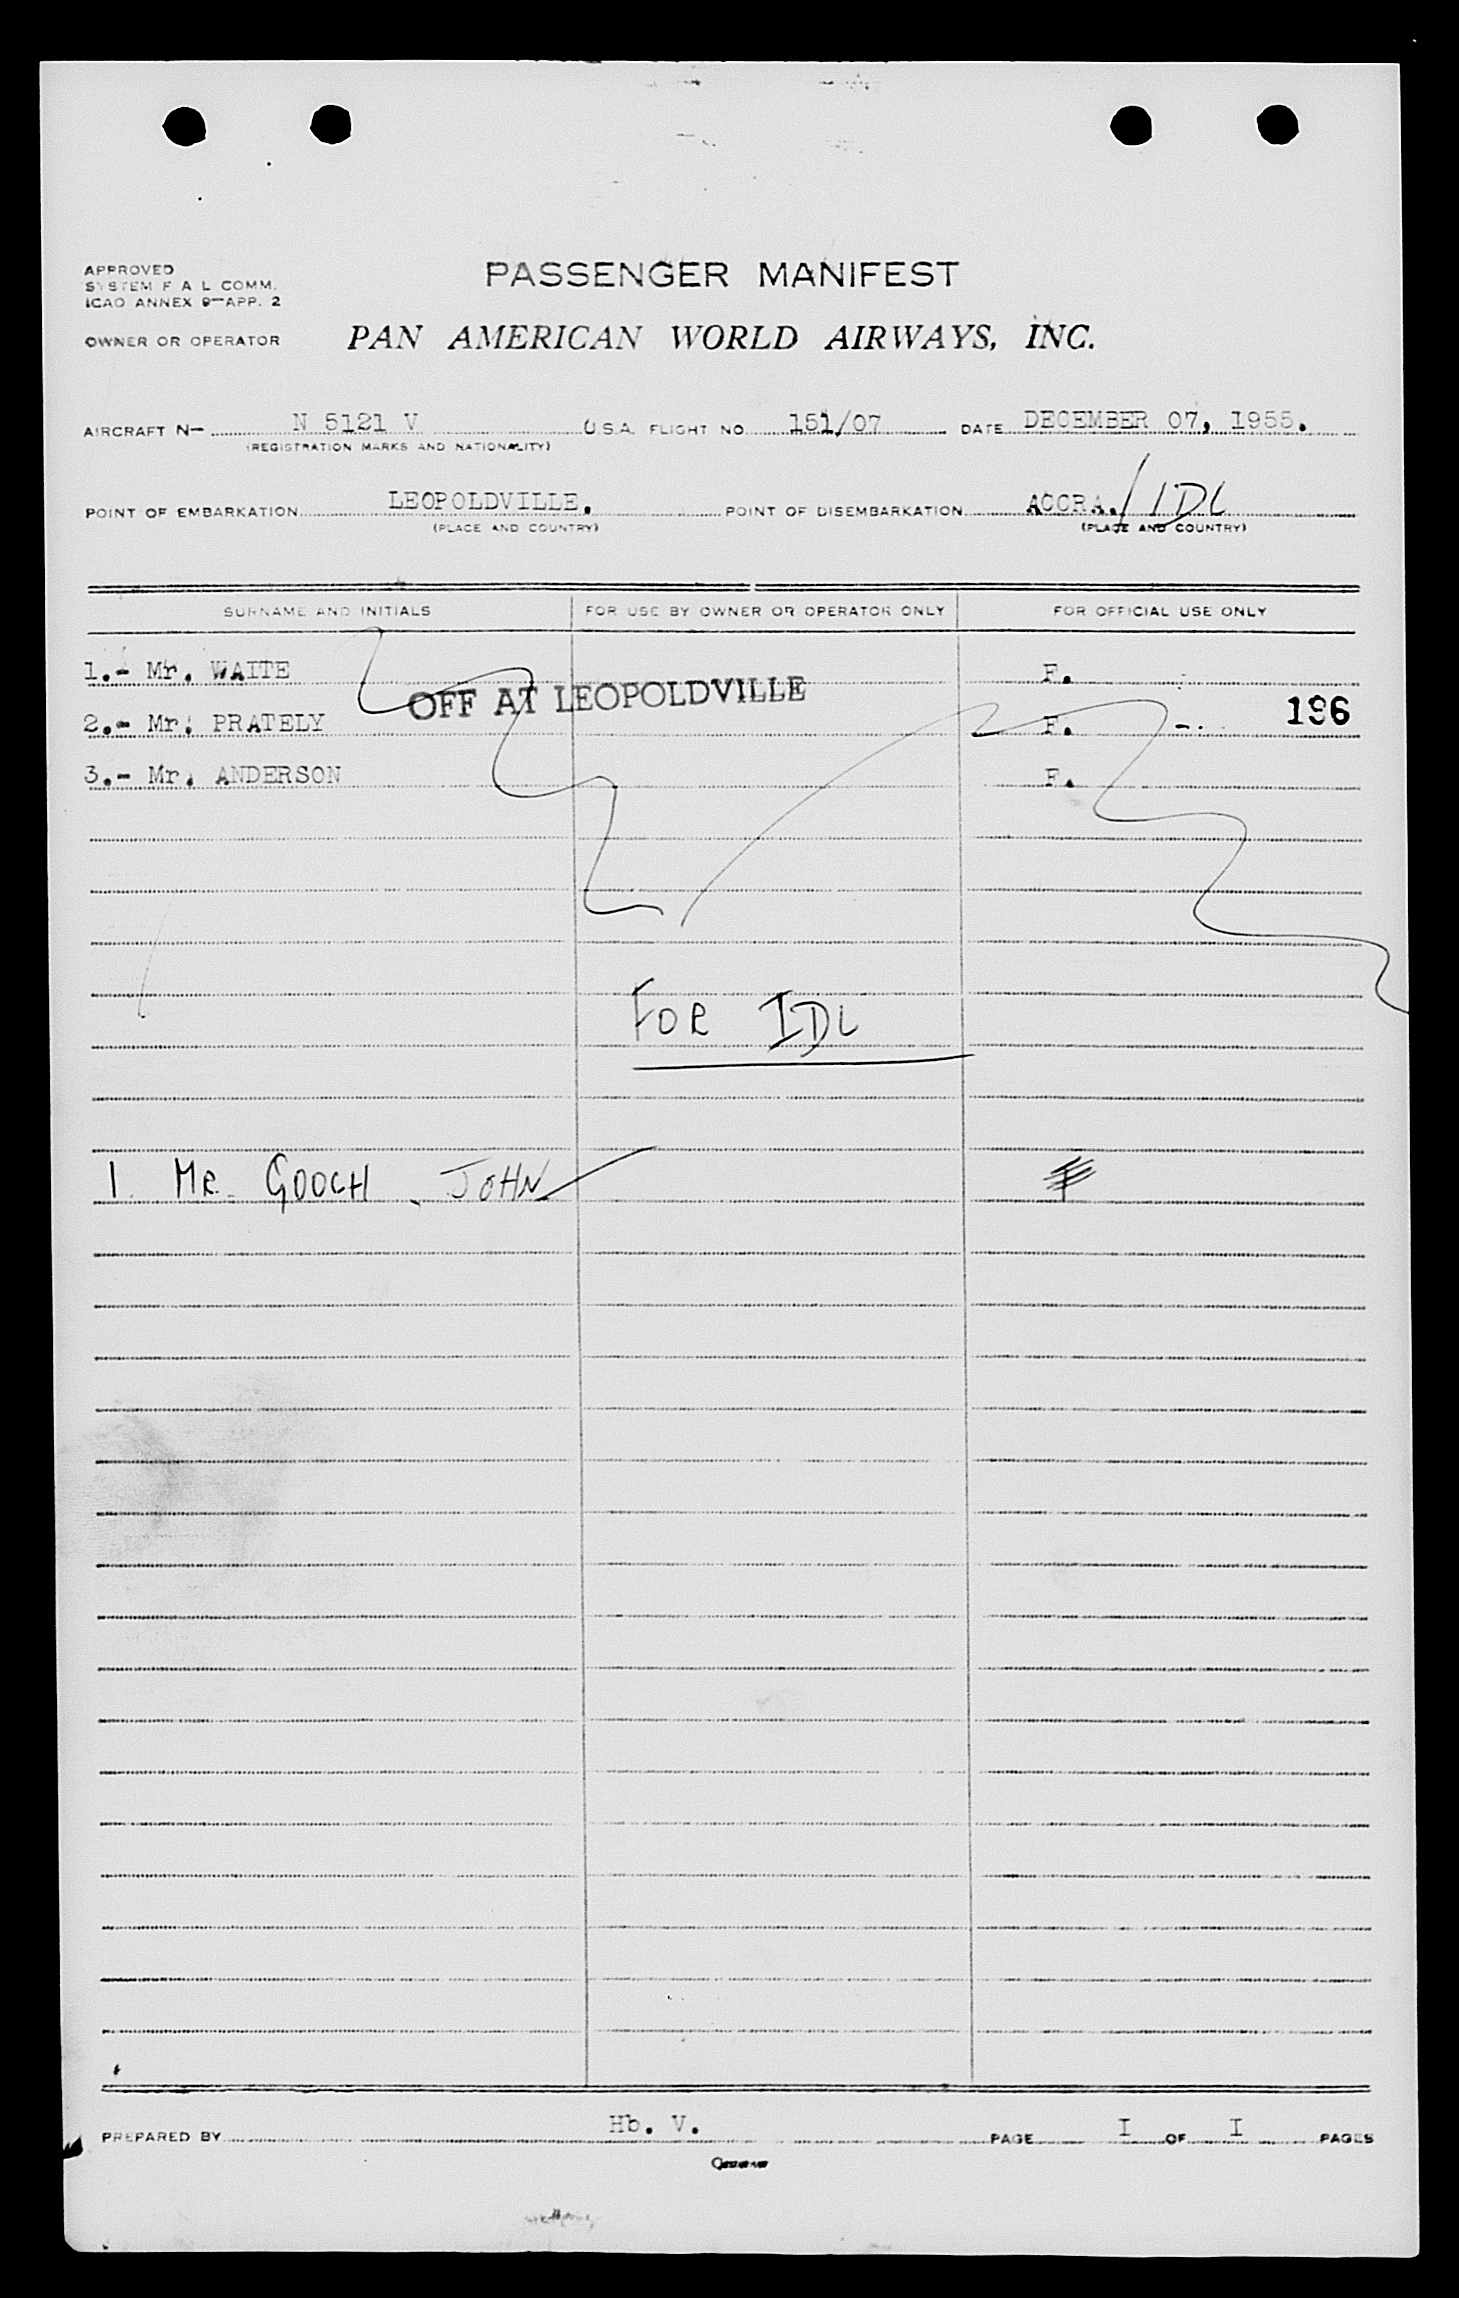 APPROVED
SYSTEM F A L COMM.
ICAO ANNEX 9—APP. 2
PASSENGER MANIFEST
OWNER OR OPERATOR PAN AMERICAN WORLD AIRWAYS, INC.
AIRCRAFT N— N 5121 V U.S.A. FLIGHT NO. 151/07 DATE DECEMBER 07, 1955.
(REGISTRATION MARKS AND NATIONALITY)
POINT OF EMBARKATION LEOPOLDVILLE. POINT OF DISEMBARKATION ACCRA. / IDL
(PLACE AND COUNTRY) (PLACE AND COUNTRY)
SURNAME AND INITIALS FOR USE BY OWNER OR OPERATOR ONLY FOR OFFICIAL USE ONLY
1.- Mr. WAITE F.
OFF AT LEOPOLDVILLE
2.- Mr. PRATELY F. -. 196
3.- Mr. ANDERSON F.
FOR IDL
1. MR. GOOCH. JOHN F
PREPARED BY Hb. V. PAGE I OF I PAGES